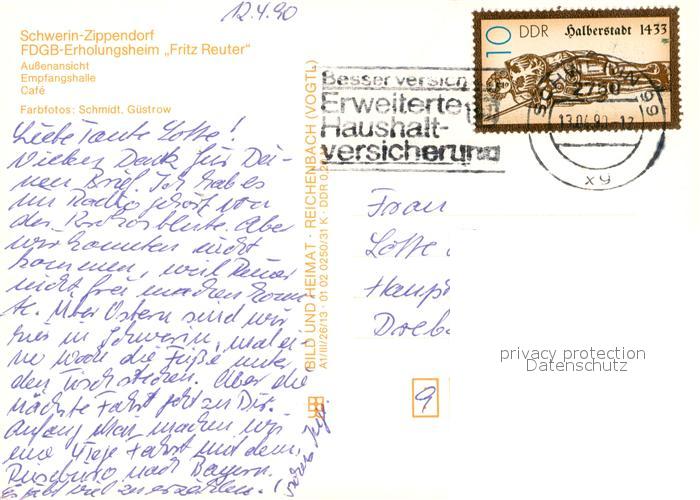 12.4.90
Schwerin-Zippendorf
FDGB-Erholungsheim „Fritz Reuter"
Außenansicht
Empfangshalle
Café
Farbfotos: Schmidt, Güstrow
Liebe Tante Lotte!
Vielen Dank für Dei-
nen Brief. Ich hab es
im Radio gehört von
der Krokosblüte. Aber
wir konnten nicht
kommen, weil Rainer
nicht frei machen konn-
te. Über Ostern sind wir
hier in Schwerin, mal ei-
ne Woche die Füße unter
den Tisch stecken. Aber die
nächste Fahrt geht zu Dir.
Anfang Mai machen wir
eine 4 Tage Fahrt mit dem
Reisebüro nach Bayern.
Es gibt viel zu erzählen.
BILD UND HEIMAT · REICHENBACH (VOGTL)
A1/III/26/13 · 01 02 0250/31 K · DDR 0,2
10 DDR Halberstadt 1433
Besser versich
Erweiterte
Haushalt-
versicherung
SCHWERIN 1
2750
13.04.90
xg
Frau
Lotte
Haupt
Dreb
9
privacy protection
Datenschutz